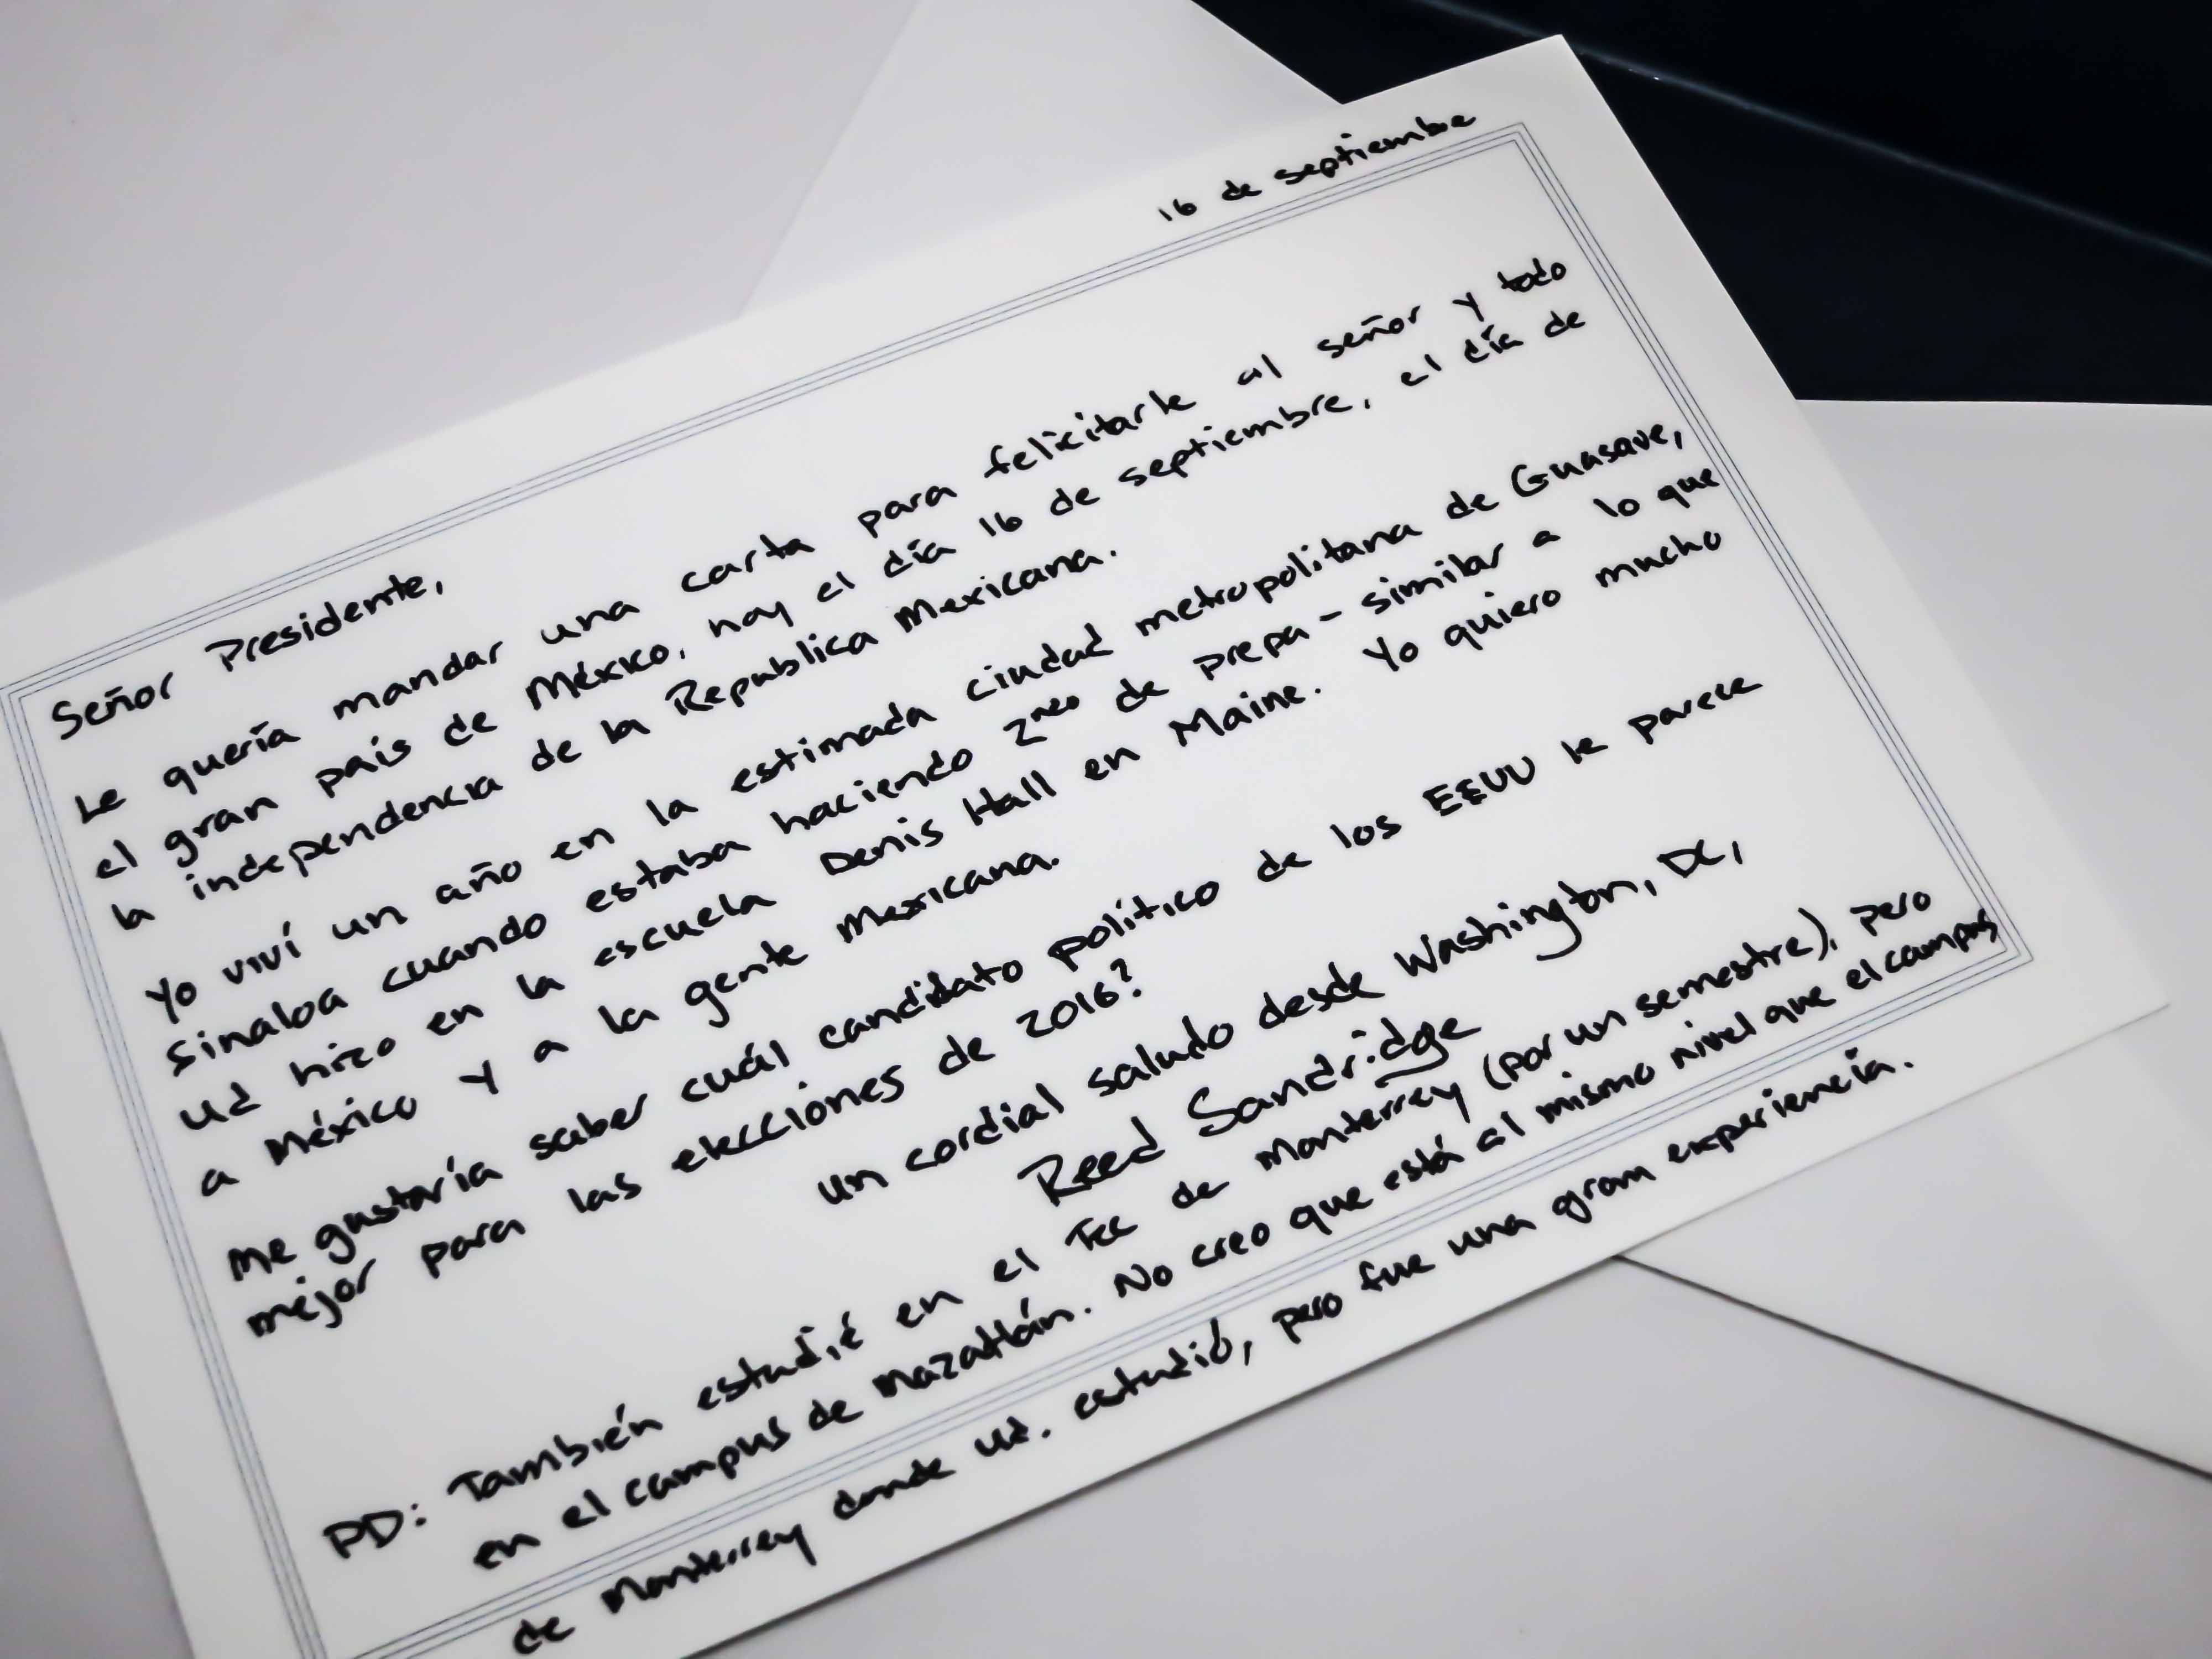 16 de septiembre
Señor Presidente,
Le quería mandar una carta para felicitarle al señor y todo
el gran país de México, hoy el día 16 de septiembre, el día de
la independencia de la Republica Mexicana.
Yo viví un año en la estimada ciudad metropolitana de Guasave,
Sinaloa cuando estaba haciendo 2ndo de prepa - similar a lo que
Ud hizo en la escuela Denis Hall en Maine. Yo quiero mucho
a México y a la gente Mexicana.
Me gustaría saber cuál candidato político de los EEUU le parece
mejor para las elecciones de 2016?
un cordial saludo desde Washington, DC,
Reed Sandridge
PD: También estudié en el Tec de Monterrey (por un semestre), pero
en el campus de Mazatlán. No creo que está al mismo nivel que el campus
de Monterrey donde Ud. estudió, pero fue una gran experiencia.